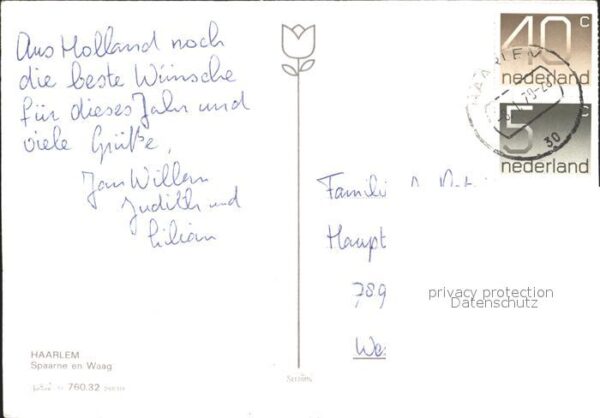 Aus Holland noch
die beste Wünsche
für dieses Jahr und
viele Grüße,
Jan Willem
Judith und
Lilian
HAARLEM
Spaarne en Waag
760.32
40 c
nederland
5 c
nederland
HAARLEM
30
Familie
Haupt
789
privacy protection
Datenschutz